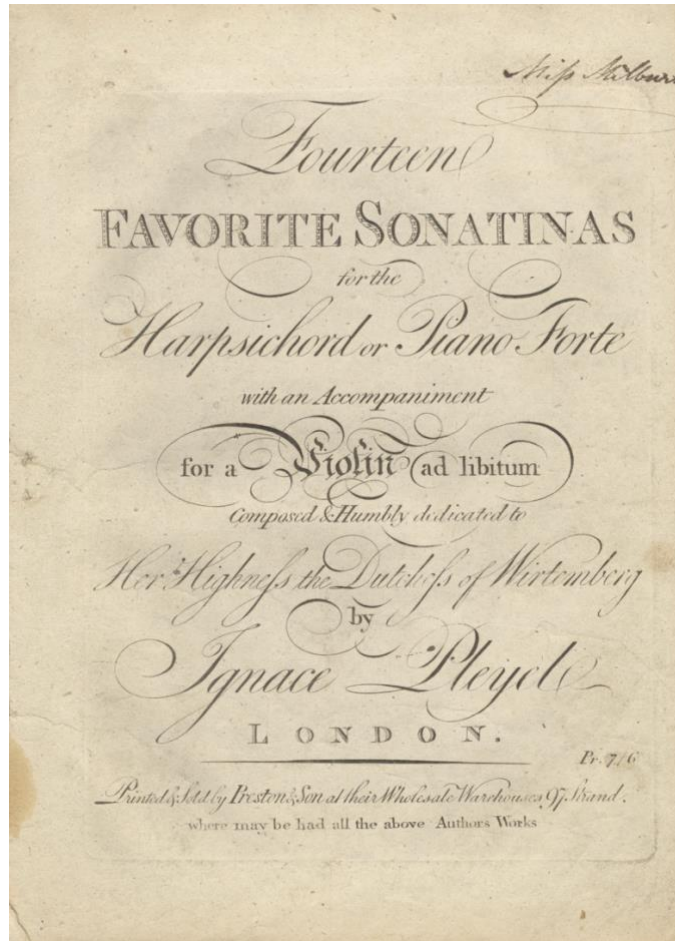 Miſs
Fourteen
FAVORITE SONATINAS
for the
Harpsichord or Piano Forte
with an Accompaniment
for a Violin ad libitum
Composed & Humbly dedicated to
Her Highneſs the Dutcheſs of Wirtemberg
by
Ignace Pleyel
LONDON.
Pr. 7/6
Printed & Sold by Preston & Son at their Wholesale Warehouses 97 Strand.
where may be had all the above Authors Works